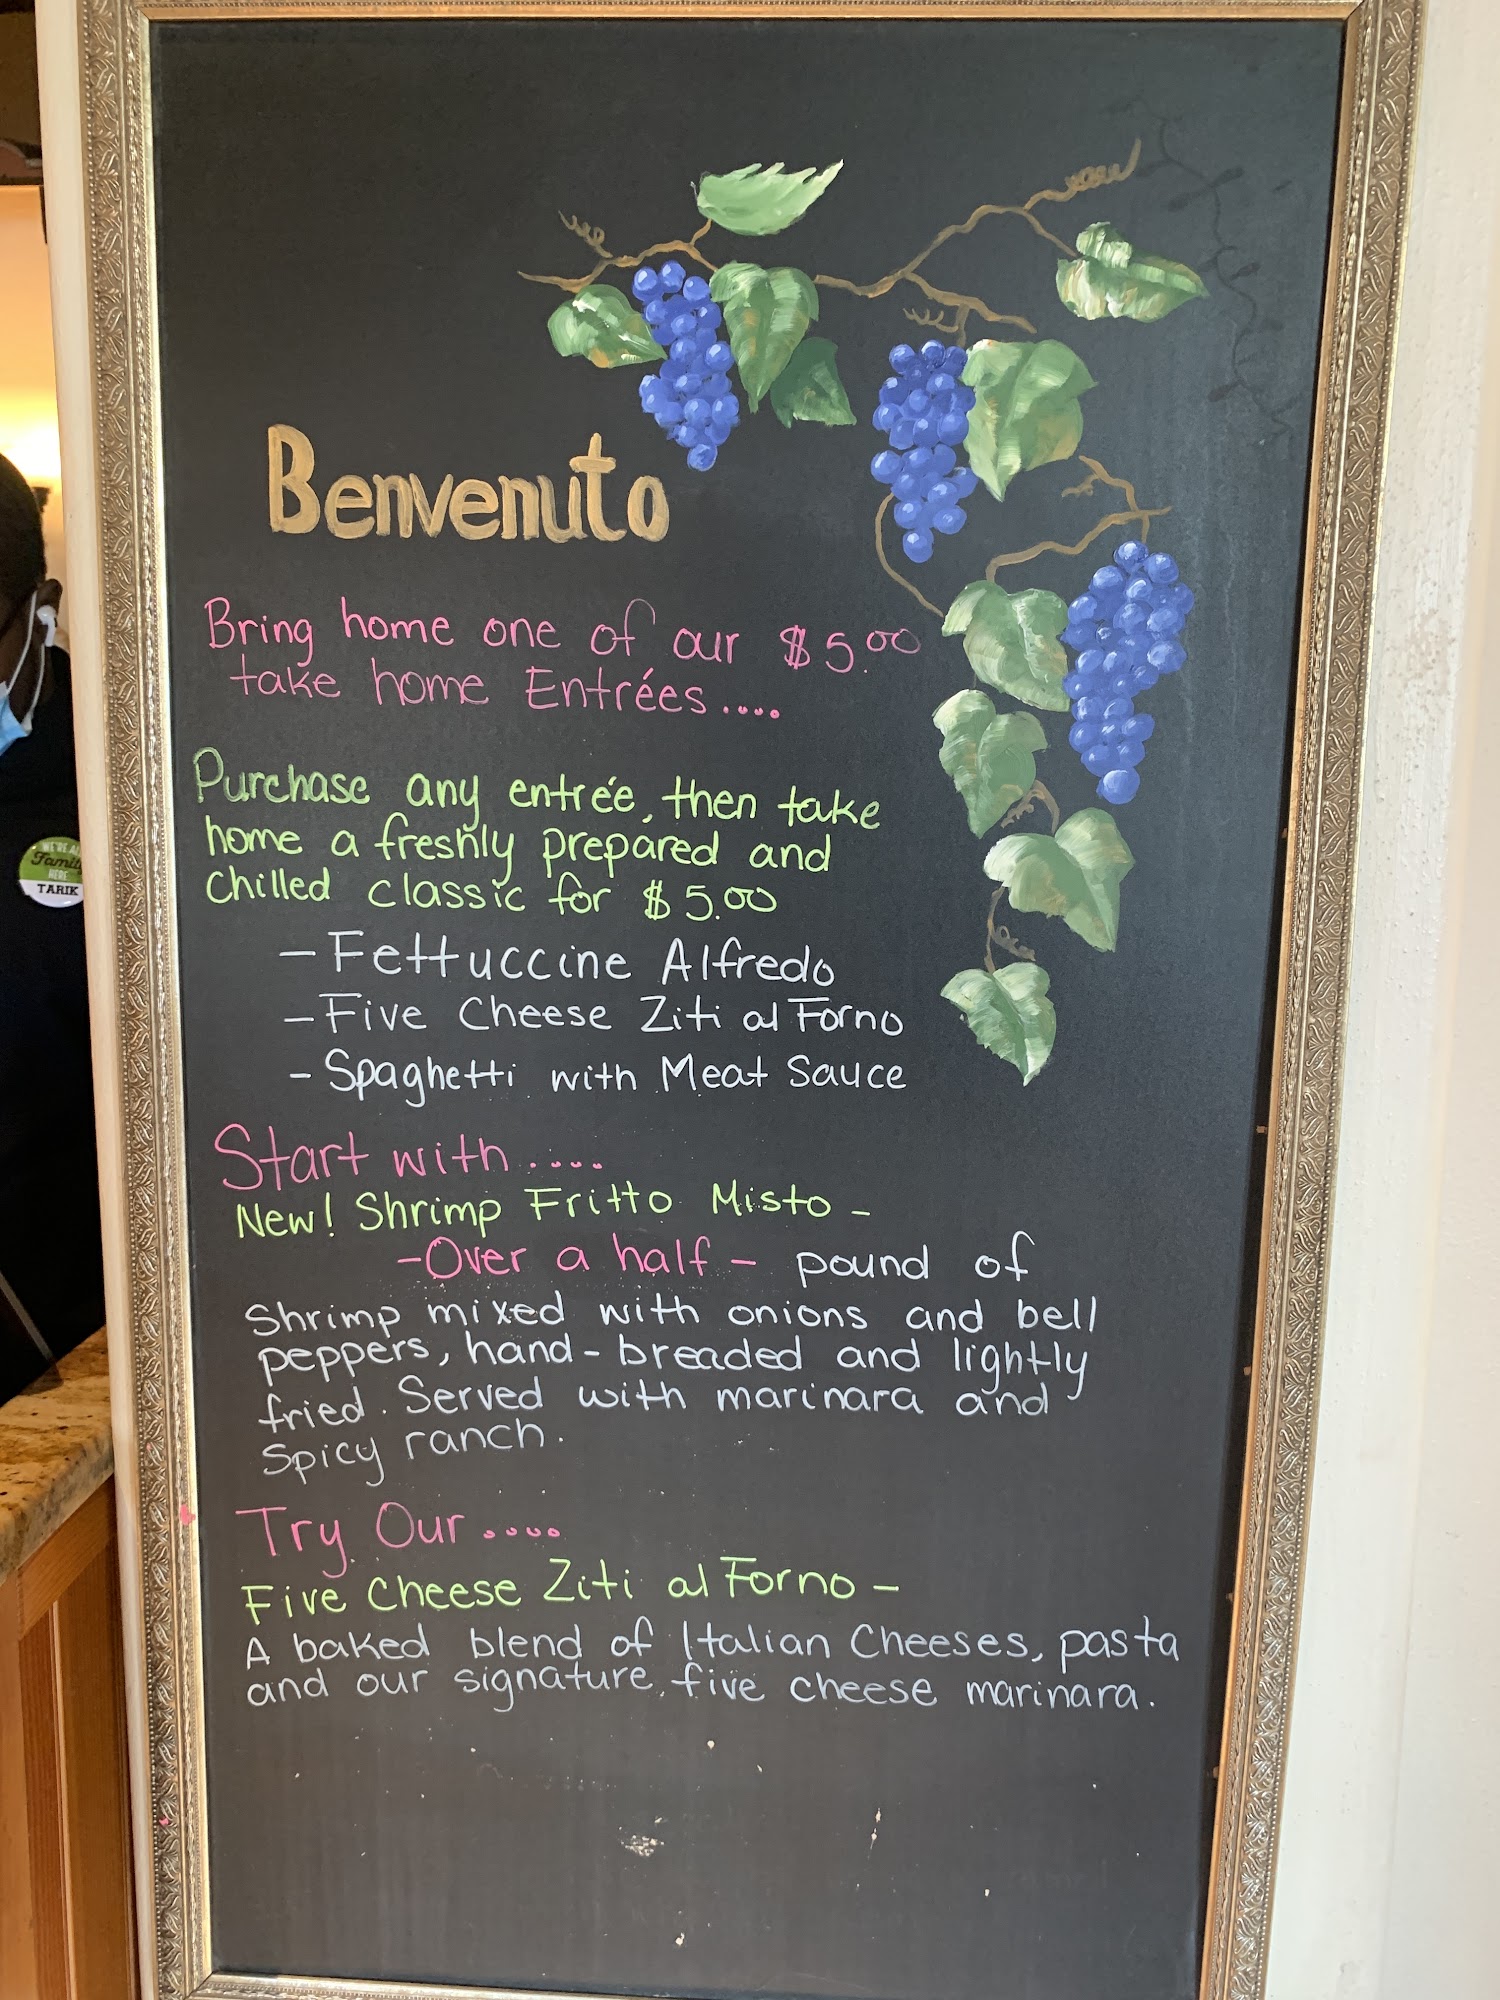 Benvenuto
Bring home one of our $5.00
take home Entrées....
Purchase any entrée, then take
home a freshly prepared and
chilled classic for $5.00
- Fettuccine Alfredo
- Five Cheese Ziti al Forno
- Spaghetti with Meat Sauce
Start with....
New! Shrimp Fritto Misto -
- Over a half - pound of
Shrimp mixed with onions and bell
peppers, hand-breaded and lightly
fried. Served with marinara and
Spicy ranch.
Try Our....
Five Cheese Ziti al Forno -
A baked blend of Italian Cheeses, pasta
and our signature, five cheese marinara.
WE'RE ALL
Family
HERE
TARIK